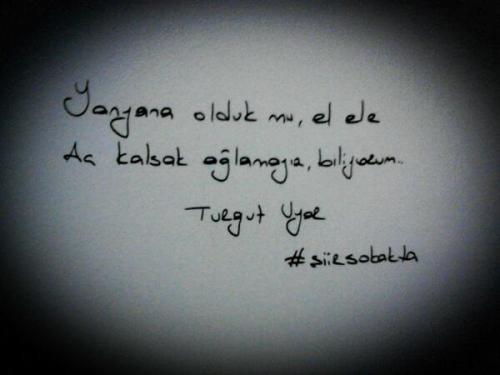 Yanyana olduk mu, el ele
Aç kalsak ağlamayız, biliyorum..
Turgut Uyar
#siirsokakta